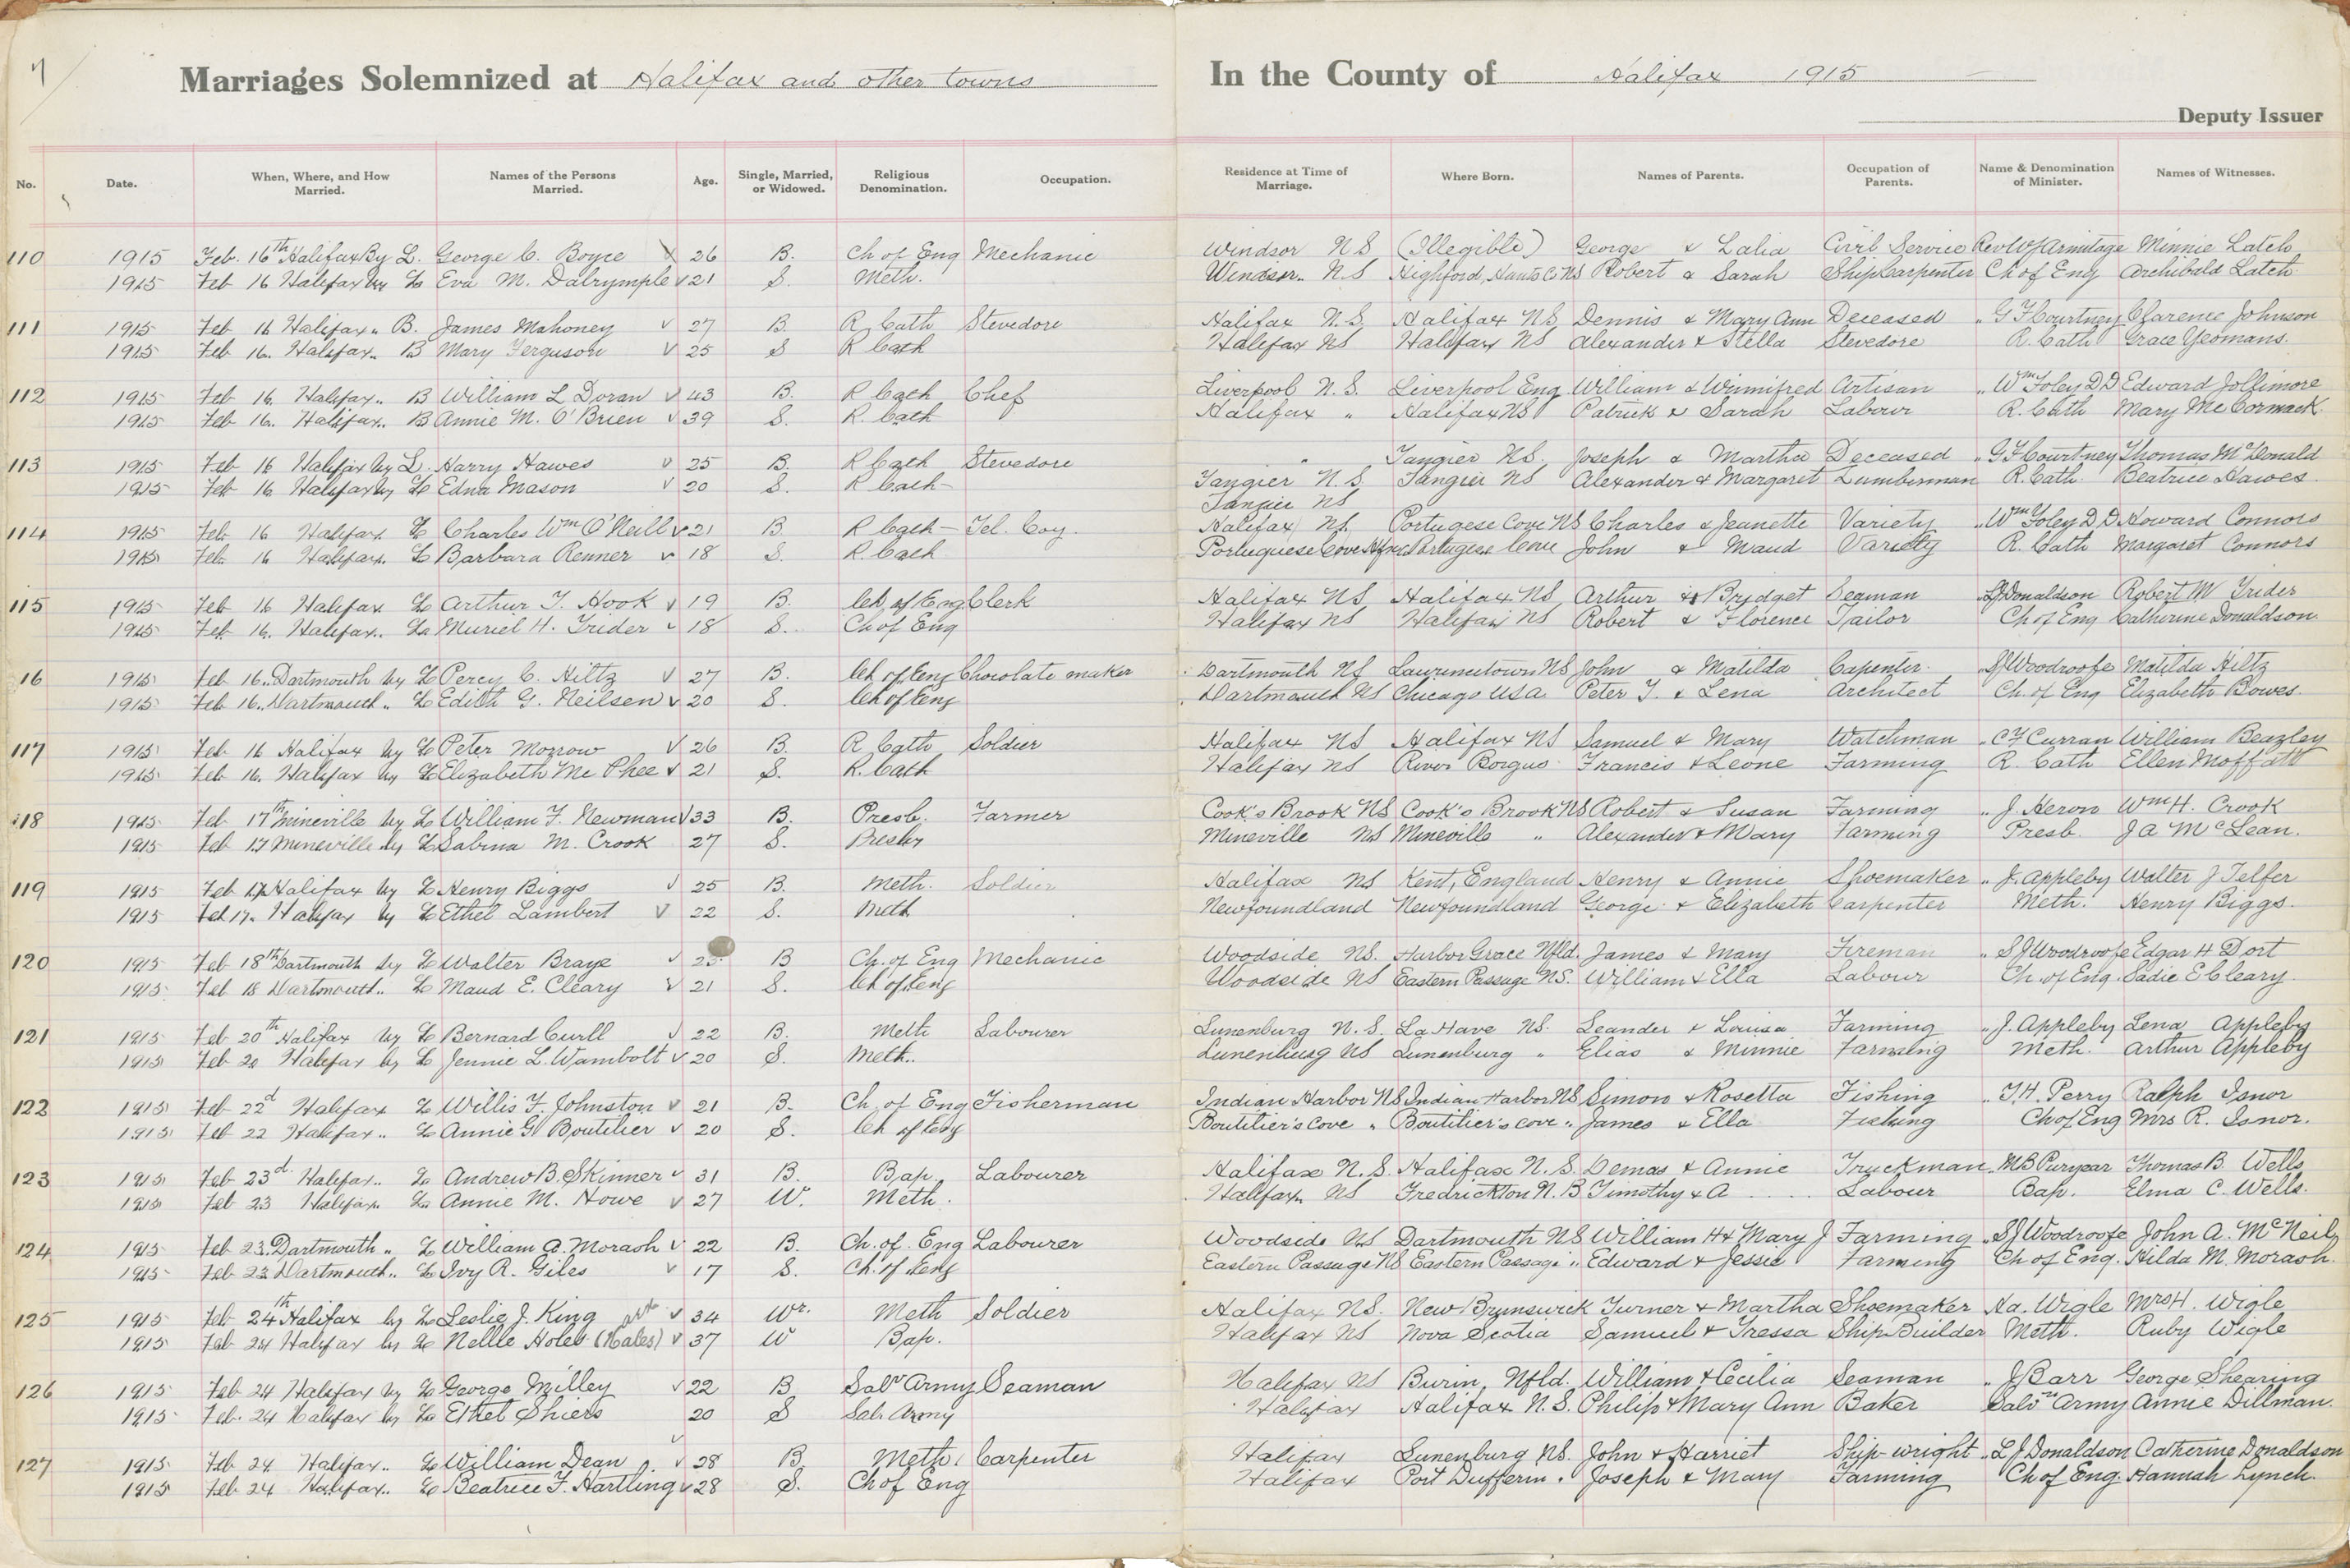 7
Marriages Solemnized at Halifax and other towns In the County of Halifax 1915
Deputy Issuer
No. Date. When, Where, and How Married. Names of the Persons Married. Age. Single, Married, or Widowed. Religious Denomination. Occupation. Residence at Time of Marriage. Where Born. Names of Parents. Occupation of Parents. Name & Denomination of Minister. Names of Witnesses.
110 1915 Feb. 16th Halifax By L. George C. Boyce 26 B. Ch of Eng Mechanic Windsor NS (Illegible) George & Lalia Civil Service Rev W J Armitage Minnie Latch
1915 Feb 16 Halifax by L Eva M. Dalrymple 21 S. Meth. Windsor NS Highford, Hants Co NS Robert & Sarah Ship Carpenter Ch of Eng Archibald Latch
111 1915 Feb 16 Halifax " B. James Mahoney 27 B. R Cath Stevedore Halifax N.S. Halifax NS Dennis & Mary Ann Deceased " G F Courtney Clarence Johnson
1915 Feb 16. Halifax " B Mary Ferguson 25 S R Cath Halifax NS Halifax NS Alexander & Stella Stevedore R. Cath Grace Yeomans.
112 1915 Feb 16. Halifax " B William L Doran 43 B. R Cath Chef Liverpool N.S. Liverpool Eng William & Winnifred Artisan " Wm Foley DD Edward Jollimore
1915 Feb 16. Halifax " B Annie M. O'Brien 39 S. R. Cath Halifax " Halifax NS Patrick & Sarah Labour R. Cath Mary McCormack
113 1915 Feb 16 Halifax by L. Harry Hawes 25 B. R Cath Stevedore " Tangier NS. Joseph & Martha Deceased " G F Courtney Thomas McDonald
1915 Feb 16 Halifax by L Edna Mason 20 S. R Cath Tangier N.S. Tangier NS Alexander & Margaret Lumberman R. Cath. Beatrice Hawes.
Tangier NS
114 1915 Feb 16 Halifax L Charles Wm O'Neill 21 B R Cath Tel. Coy. Halifax NS. Portugese Cove NS Charles & Jeanette Variety " Wm Foley D D Howard Connors
1915 Feb 16 Halifax. L Barbara Renner 18 S. R. Cath Portuguese Cove Portugese Cove John & Maud Variety R. Cath Margaret Connors
115 1915 Feb 16 Halifax L Arthur T. Hook 19 B. Ch. of Eng Clerk Halifax NS Halifax NS Arthur & Bridget Seaman LJ Donaldson Robert M Trider
1915 Feb 16. Halifax " L Muriel H. Trider 18 S. Ch of Eng Halifax NS Halifax NS Robert & Florence Tailor Ch of Eng Catherine Donaldson.
16 1915 Feb 16. Dartmouth by L Percy C. Hiltz 27 B. Ch of Eng Chocolate maker Dartmouth NS Lawrencetown NS John & Matilda Capenter. SJ Woodroofe Matilda Hiltz
1915 Feb 16. Dartmouth " L Edith G. Neilsen 20 S. Ch of Eng Dartmouth NS Chicago USA Peter T. & Lena Architect Ch. of Eng Elizabeth Bowes.
117 1915 Feb 16 Halifax by L Peter Morrow 26 B. R Cath Soldier Halifax NS Halifax NS Samuel & Mary Watchman " C F Curran William Beazley
1915 Feb 16. Halifax by L Elizabeth McPhee 21 S. R. Cath Halifax NS River Borgus Francis & Leone Farming R. Cath Ellen Moffatt
118 1915 Feb 17th Mineville by L William F. Newman 33 B. Presb. Farmer Cook's Brook NS Cook's Brook NS Robert & Susan Farming " J. Heron Wm H. Crook
1915 Feb 17 Mineville by L Sabina M. Crook 27 S. Presby Mineville NS Mineville " Alexander & Mary Farming Presb. J A McLean.
119 1915 Feb 17 Halifax by L Henry Biggs 25 B. Meth. Soldier Halifax NS Kent, England Henry & Annie Shoemaker " J. Appleby Walter J Telfer
1915 Feb 17. Halifax by L Ethel Lambert 22 S. Meth Newfoundland Newfoundland George & Elizabeth Carpenter Meth. Henry Biggs.
120 1915 Feb 18th Dartmouth by L Walter Braye 25 B Ch. of Eng Mechanic Woodside NS. Harbor Grace Nfld. James & Mary Fireman " SJ Woodroofe Edgar H Dort
1915 Feb 18 Dartmouth " L Maud E. Cleary 21 S. Ch of Eng Woodside NS Eastern Passage NS. William & Ella Labour Ch. of Eng. Sadie E Cleary
121 1915 Feb 20th Halifax by L Bernard Curll 22 B. Meth Labourer Lunenburg N.S. La Have NS. Leander & Louisa Farming " J. Appleby Lena Appleby
1915 Feb 20 Halifax by L Jennie L. Wambolt 20 S. Meth. Lunenburg NS Lunenburg " Elias & Minnie Farming Meth. Arthur Appleby
122 1915 Feb 22d Halifax L Willis F. Johnston 21 B. Ch. of Eng Fisherman Indian Harbor NS Indian Harbor NS Simon & Rosetta Fishing " T.H. Perry Ralph Isnor
1915 Feb 22 Halifax " L Annie G Boutilier 20 S. Ch of Eng Boutilier's Cove " Boutilier's cove " James & Ella Fishing Ch of Eng Mrs R. Isnor.
123 1915 Feb 23d. Halifax " L Andrew B. Skinner 31 B. Bap. Labourer Halifax N.S. Halifax N.S. Demas & Annie Truckman " MB Puryear Thomas B. Wells
1915 Feb 23 Halifax L Annie M. Howe 27 W. Meth. Halifax. NS Fredrickton N.B. Timothy & A .... Labour Bap. Elma C. Wells.
124 1915 Feb 23. Dartmouth " L William A. Morash 22 B. Ch. of. Eng Labourer Woodside NS Dartmouth NS William H & Mary J Farming " SJ Woodroofe John A. McNeil
1915 Feb 23 Dartmouth " L Ivy R. Giles 17 S. Ch. of Eng Eastern Passage NS Eastern Passage " Edward & Jessie Farming Ch of Eng. Hilda M. Morash.
125 1915 Feb 24th Halifax by L Leslie J. King 34 Wr. Meth Soldier Halifax NS. New Brunswick Turner & Martha Shoemaker Ha. Wigle Mrs H. Wigle
1915 Feb 24 Halifax by L Nellie Holes (Hales) 37 W Bap. Halifax NS Nova Scotia Samuel & Tressa Ship Builder Meth. Ruby Wigle
126 1915 Feb 24 Halifax by L George Milley 22 B Salv Army Seaman Halifax NS Burin, Nfld. William & Cecilia Seaman " J Barr George Shearing
1915 Feb. 24 Halifax by L Ethel Shiers 20 S Sal. Army Halifax Halifax N.S. Philip & Mary Ann Baker Salvn Army Annie Dillman.
127 1915 Feb 24 Halifax " L William Dean 28 B. Meth. Carpenter Halifax Lunenburg NS. John & Harriet Ship-wright " L J Donaldson Catherine Donaldson
1915 Feb 24 Halifax " L Beatrice F. Hartling 28 S. Ch of Eng Halifax Port Dufferin. Joseph & Mary Farming Ch of Eng. Hannah Lynch.